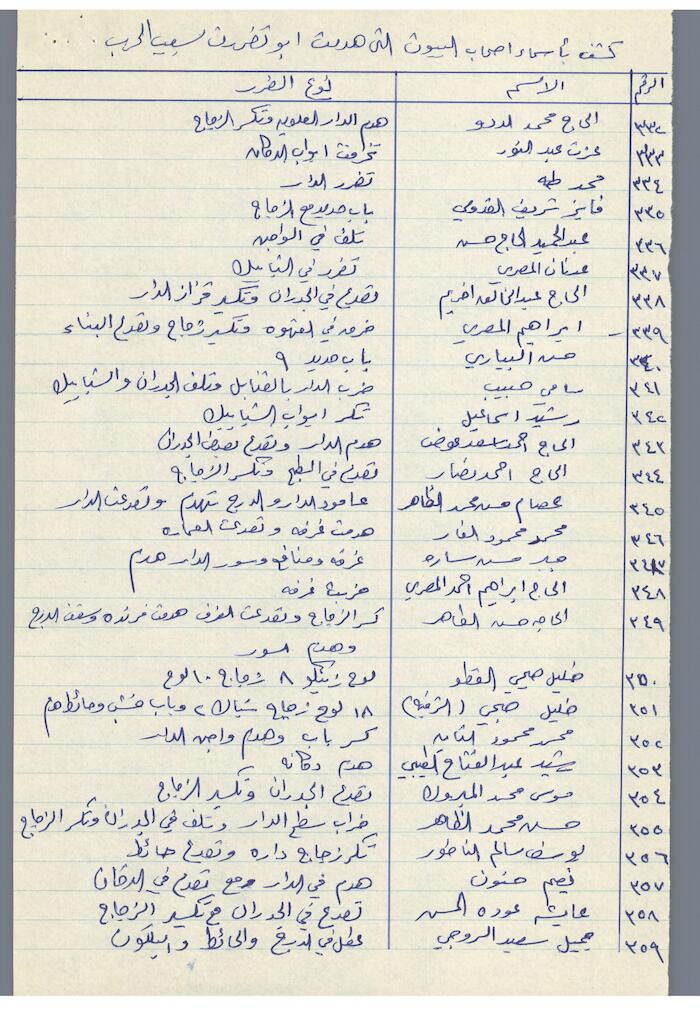 كشف بأسماء اصحاب البيوت التي هدمت او تضررت بسبب الحرب
الرقم الاسم نوع الضرر
٣٣٢ الحاج محمد هدم الدار العلويه وتكسر الزجاج
٣٣٣ عزت عبد النور تخرمت ابواب الدكانه
٣٣٤ محمد طه تضرر الدار
٣٣٥ فايز شريف القدومي باب حديد مع الزجاج
٣٣٦ عبد الحميد الحاج حسن تلف في الواجهه
٣٣٧ عدنان المصري تضرر في الشبابيك
٣٣٨ الحاج عبد الخالق تصدع في الجدران وتكسير قزاز الدار
٣٣٩ ابراهيم المصري خرق في القهوه وتكسير زجاج وتصدع البناء
٣٤٠ حسن البياري باب حديد ٩
٣٤١ سامي حبيب ضرب الدار بالقنابل وتلف الجدران والشبابيك
٣٤٢ رشيد اسماعيل تكسر ابواب الشبابيك
٣٤٣ الحاج احمد عوض هدم الدار وتصدع بعض الجدران
٣٤٤ الحاج احمد نصار تصدع في السطح وتكسر الزجاج
٣٤٥ عصام حسن محمد الظاهر عامود الدار والدرج تهدم وتصدعت الدار
٣٤٦ محمد محمود الفار هدمت غرفه وتصدعت العماره
٣٤٧ حسن ساره غرفه ومنافع وسور الدار هدم
٣٤٨ الحاج ابراهيم احمد المصري خربت غرفه
٣٤٩ الحاجه حسن الظاهر كسر الزجاج وتصدعت الغرف هدمت فرنده وسقف الدرج
وهدم السور
٣٥٠ خليل صبحي القطو لوح زينكو ٨ زجاج ١٠ لوح
٣٥١ خليل صبحي ١٨ لوح زجاج شباك ٢ وباب خشب وحائط هدم
٣٥٢ محمد محمود كسر باب وهدم واجهة الدار
٣٥٣ رشيد عبد الفتاح الطيبي هدم دكانه
٣٥٤ موسى محمد المبروك تصدع الجدران وتكسير الزجاج
٣٥٥ حسن محمد الظاهر خراب سطح الدار وتلف في الجدران وتكسر الزجاج
٣٥٦ يوسف سالم الناطور تكسر زجاج داره وتصدع حائط
٣٥٧ حنون هدم في الدار مع تصدع في الدكان
٣٥٨ عايشه عوده الحسن تصدع في الجدران مع تكسير الزجاج
٣٥٩ جميل سعيد عطل في الدرج والحائط والبلكون